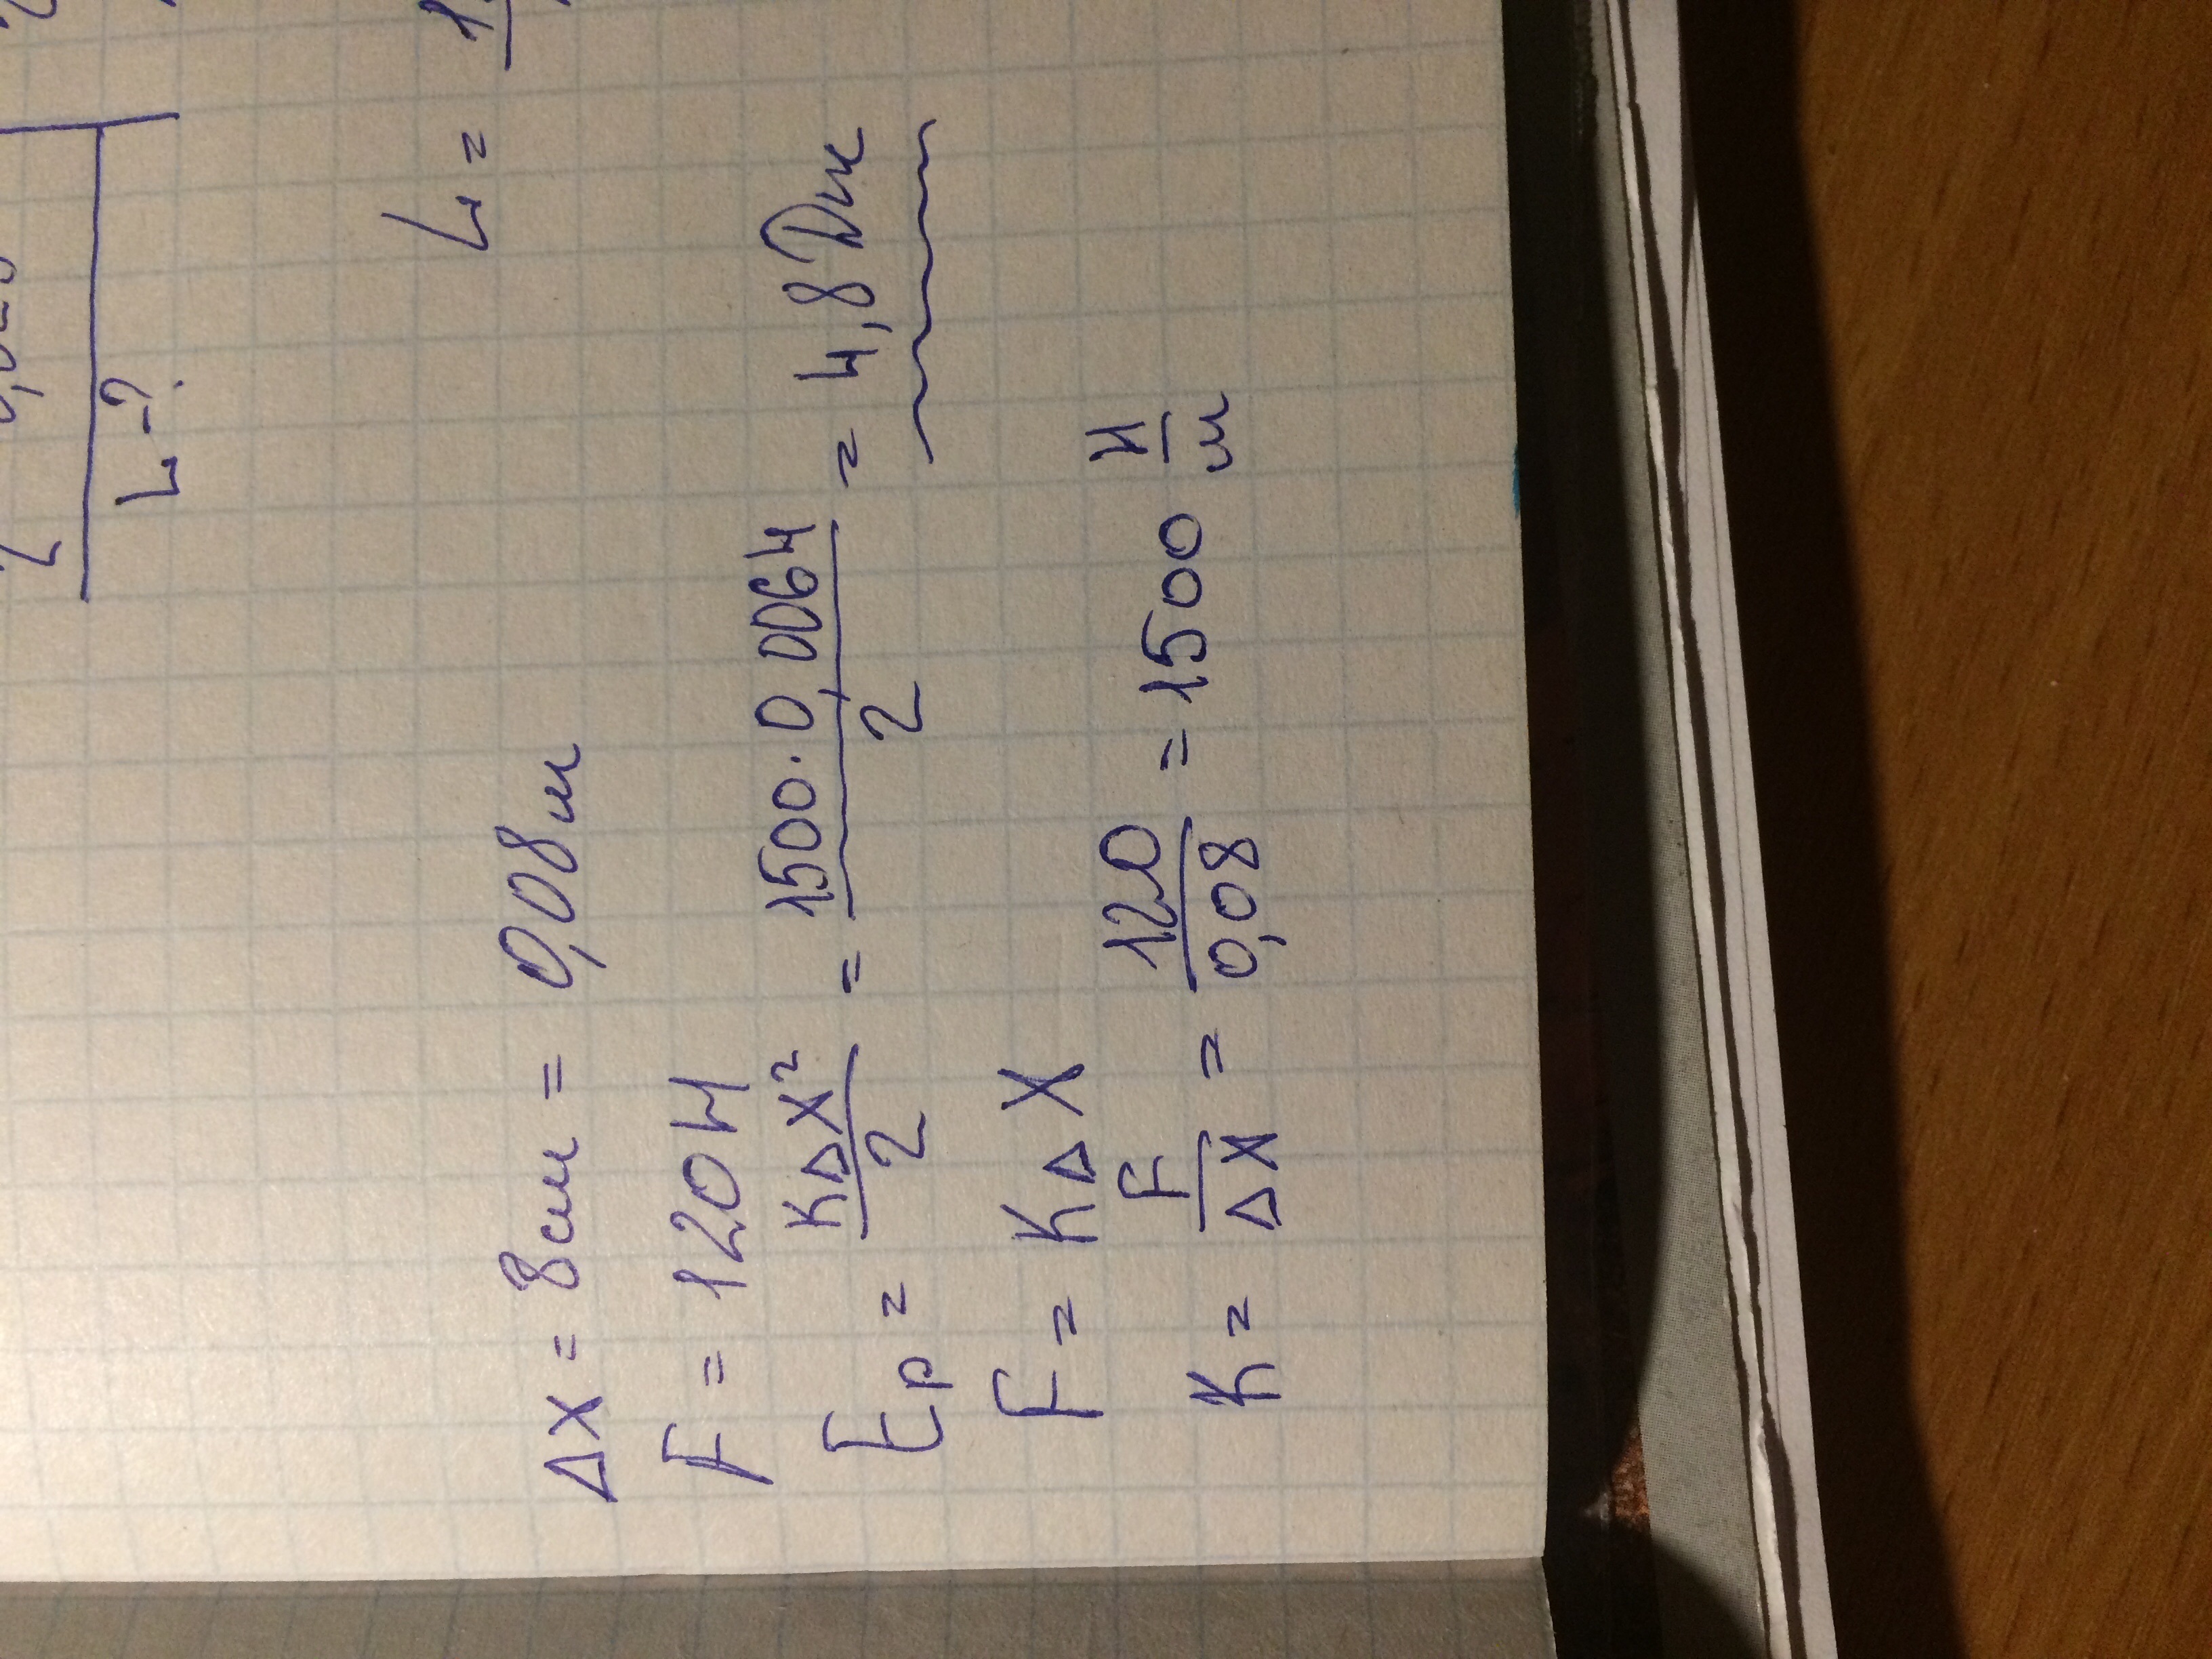 L-?
L=
Δx = 8см = 0,08м
F = 120 Н
Eр = KΔx²/2 = 1500·0,0064/2 = 4,8Дж
F = KΔx
K = F/Δx = 120/0,08 = 1500 Н/м